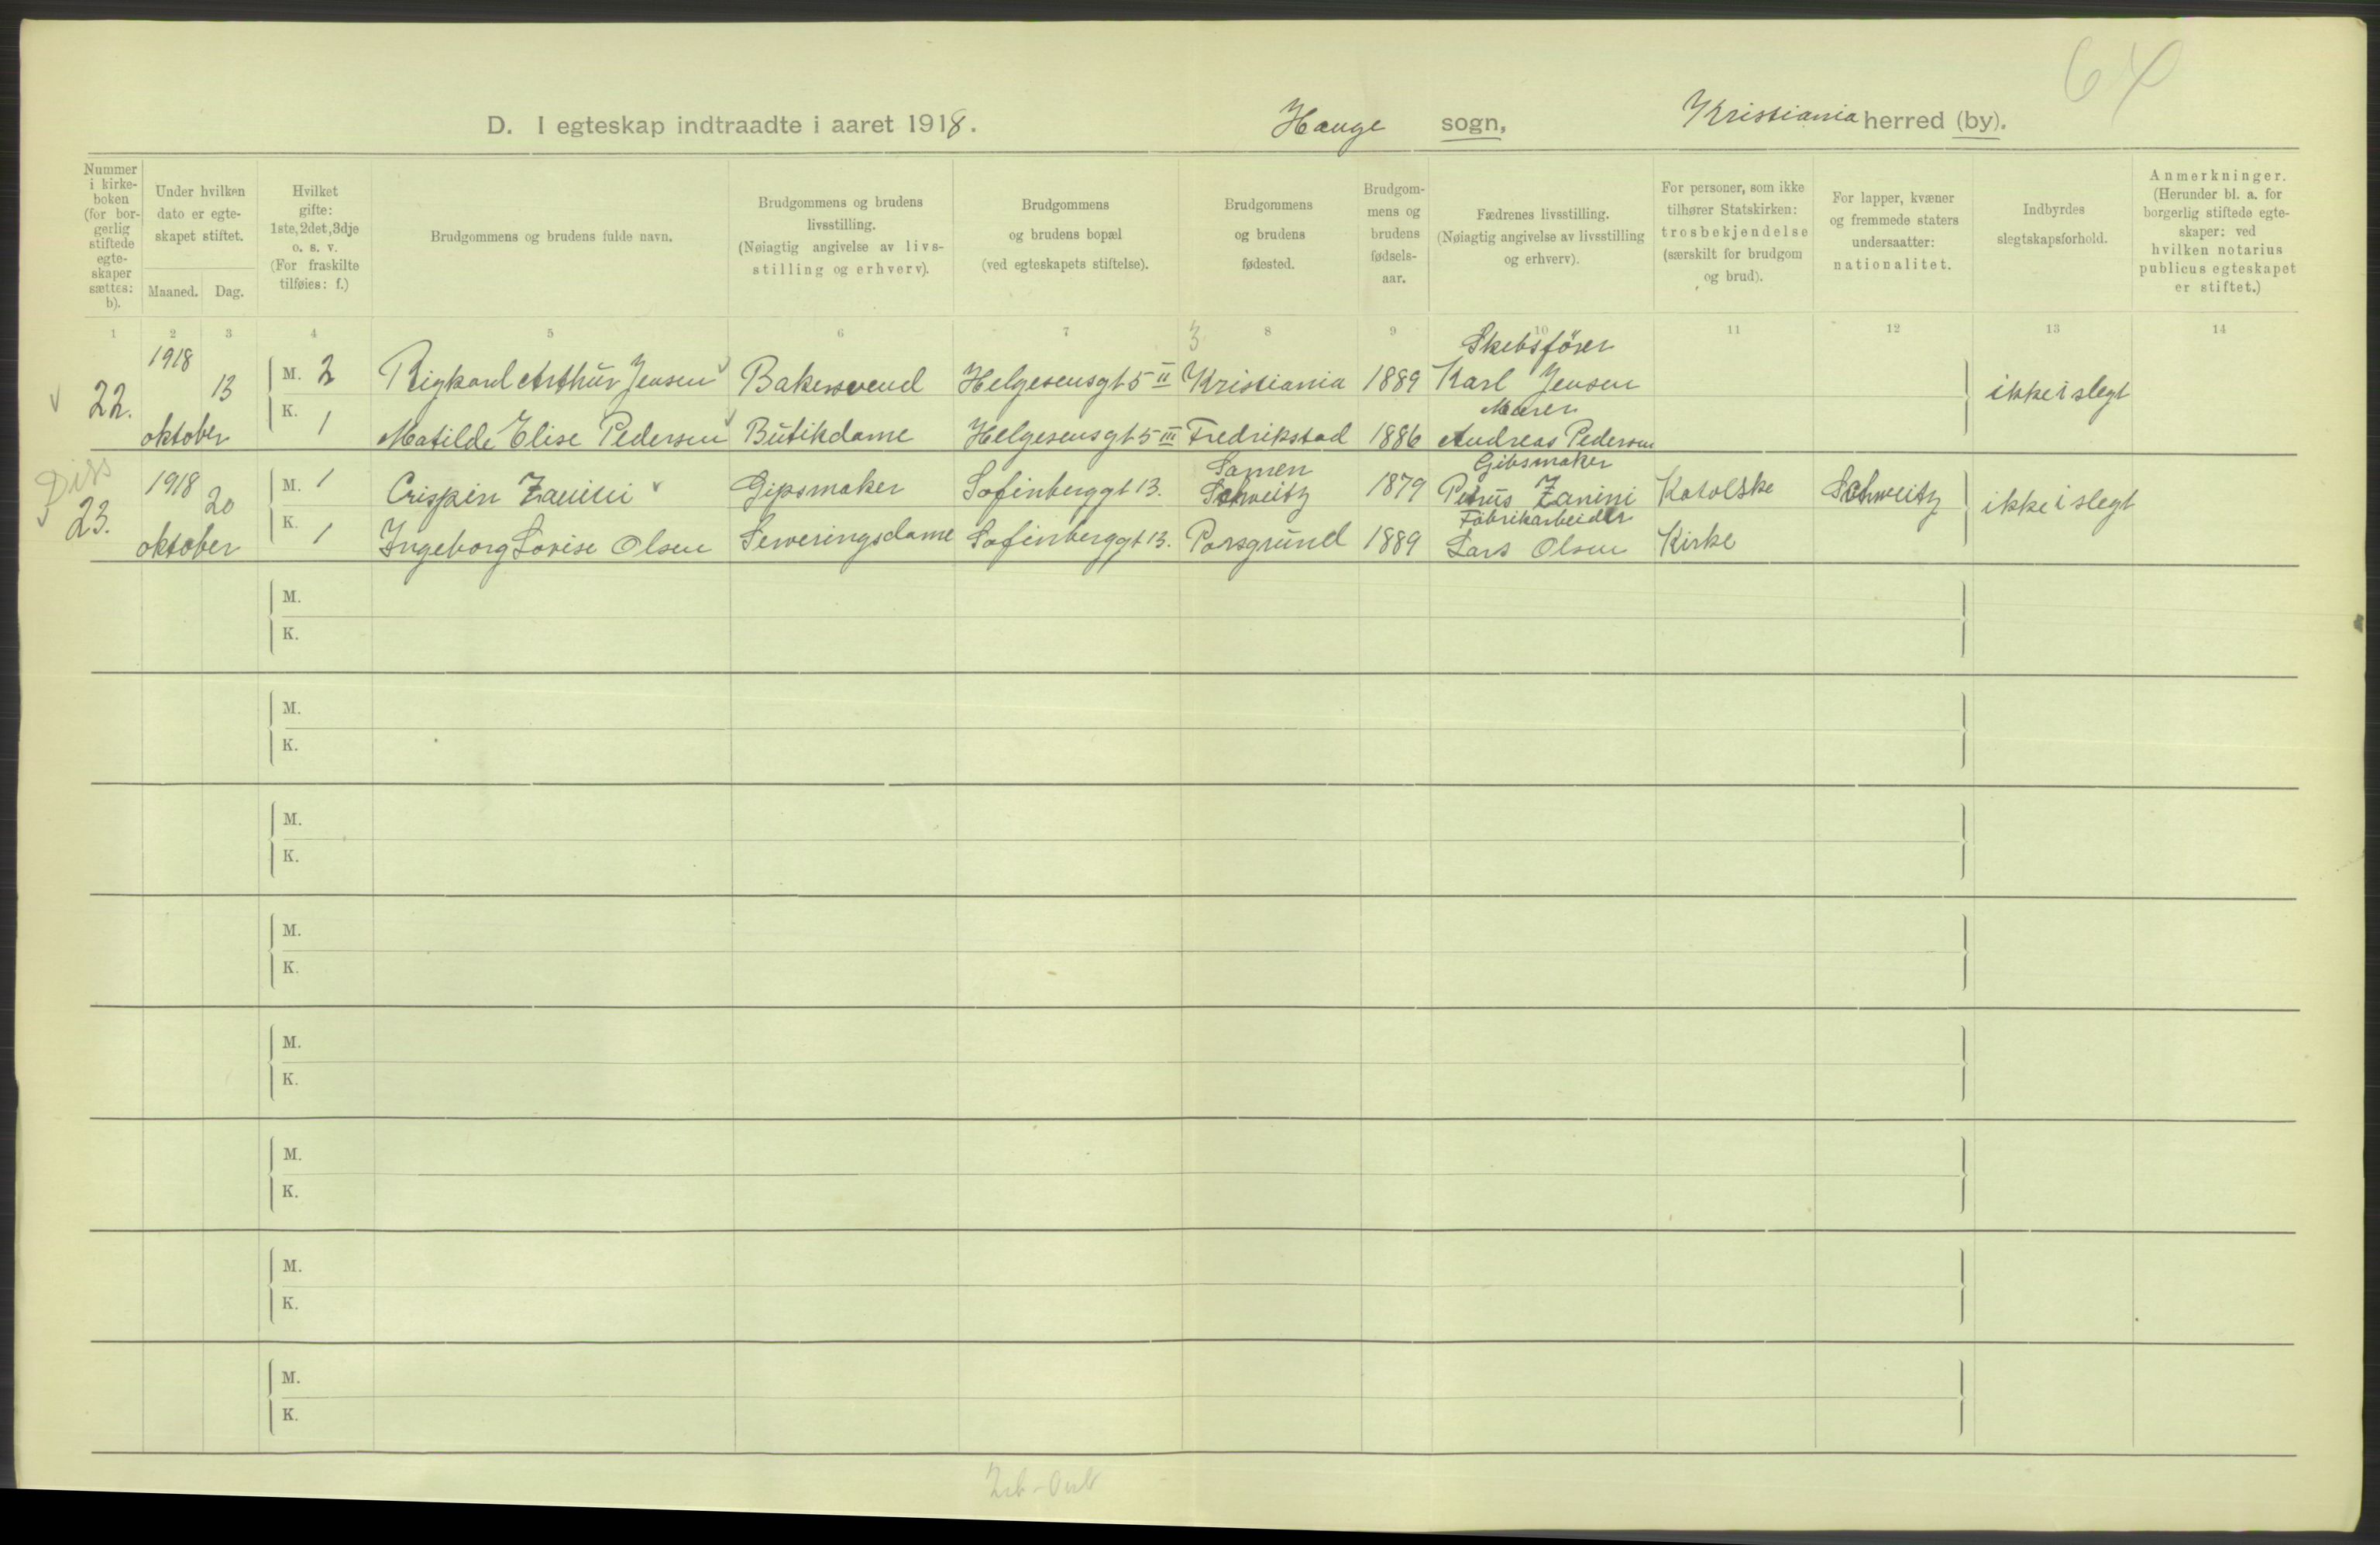 64
D. I egteskap indtraadte i aaret 1918.
Hauge sogn,
Kristiania herred (by).
Nummer i kirke-boken (for bor-gerlig stiftede egte-skaper sættes: b).
Under hvilken dato er egte-skapet stiftet.
Maaned. Dag.
Hvilket gifte: 1ste, 2det, 3dje o. s. v. (For fraskilte tilføies: f.)
Brudgommens og brudens fulde navn.
Brudgommens og brudens livsstilling. (Nøiagtig angivelse av livs-stilling og erhverv).
Brudgommens og brudens bopæl (ved egteskapets stiftelse).
Brudgommens og brudens fødested.
Brudgom-mens og brudens fødsels-aar.
Fædrenes livsstilling. (Nøiagtig angivelse av livsstilling og erhverv).
For personer, som ikke tilhører Statskirken: trosbekjendelse (særskilt for brudgom og brud).
For lapper, kvæner og fremmede staters undersaatter: nationalitet.
Indbyrdes slegtskapsforhold.
Anmerkninger. (Herunder bl. a. for borgerlig stiftede egte-skaper: ved hvilken notarius publicus egteskapet er stiftet.)
1 2 3 4 5 6 7 8 9 10 11 12 13 14
3
1918 Skibsfører
22. 13 M. 2 Rigkard Arthur Jensen Bakersvend Helgesensgt 5 II Kristiania 1889 Karl Jensen ikke i slegt
Murer
oktober K. 1 Matilde Elise Pedersen Butikdame Helgesensgt 5 III Fredrikstad 1886 Andreas Pedersen
Diss
Gibsmaker
23. 1918 20 M. 1 Crispin Zanini Gipsmaker Sofienberggt 13. Schweitz 1879 Petrus Zanini Katolske Schweitz ikke i slegt
Fabrikarbeider
oktober K. 1 Ingeborg Lovise Olsen Serveringsdame Sofienberggt 13. Porsgrund 1889 Lars Olsen Kirke
M.
K.
M.
K.
M.
K.
M.
K.
M.
K.
M.
K.
M.
K.
M.
K.